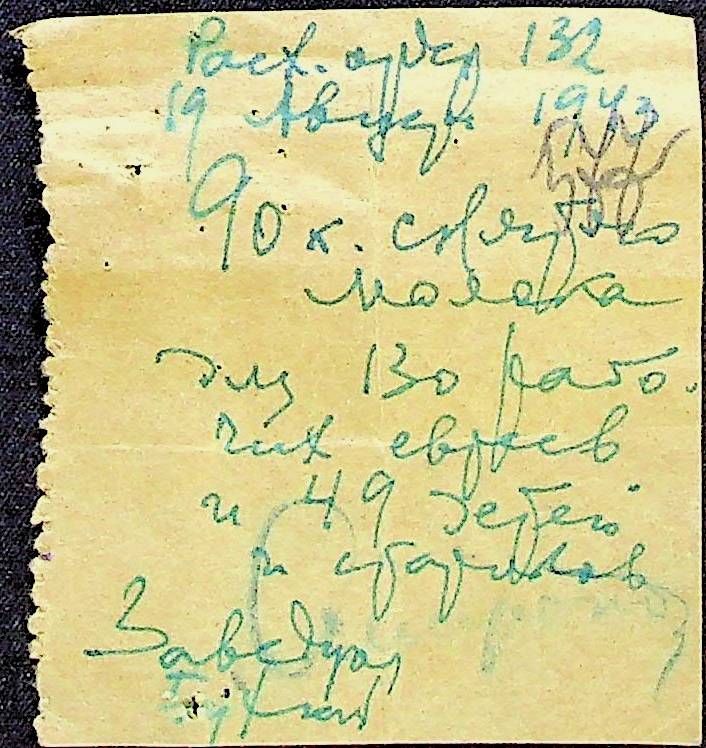 Расх. ордер 132
19 Август 1943
90 к. снятого
молока
для 130 рабо.
чих евреев
и 49 детей
и стариков
Заведующ
кухней